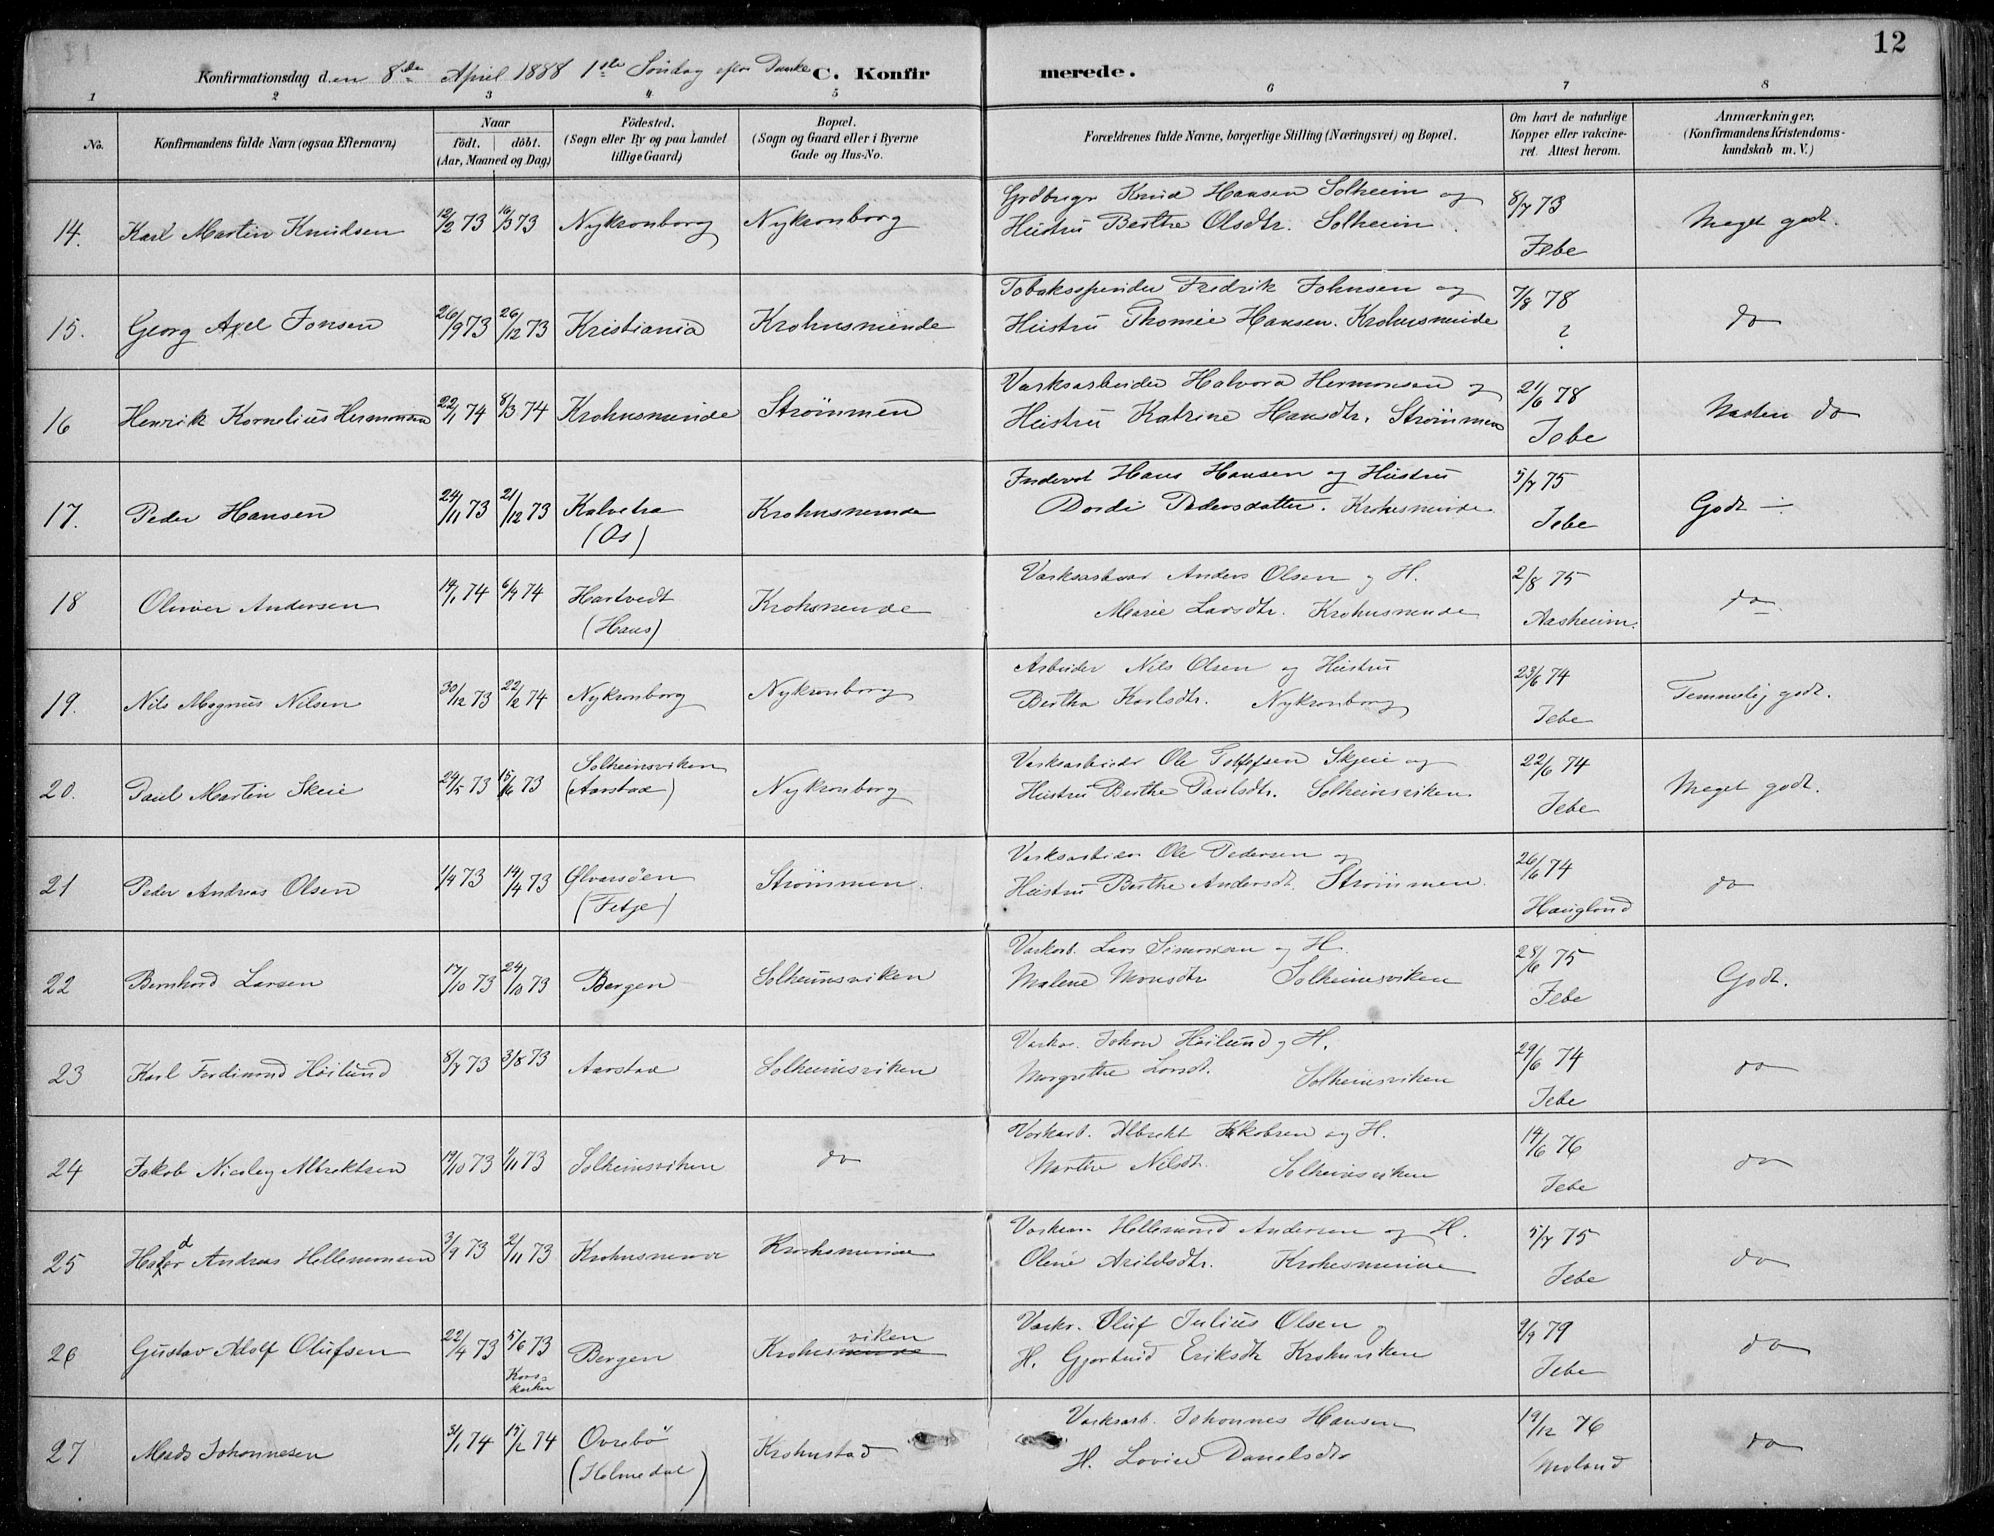 12
Konfirmationsdag den 8de April 1888 1ste Søndag efter Paaske C. Konfirmerede.
1 2 3 4 5 6 7 8
No. Konfirmandens fulde Navn (ogsaa Efternavn) Naar født. døbt. (Aar, Maaned og Dag) Fødested. (Sogn eller By og paa Landet tillige Gaard) Bopæl. (Sogn og Gaard eller i Byerne Gade og Hus-No. Forældrenes fulde Navne, borgerlige Stilling (Næringsvei) og Bopæl. Om havt de naturlige Kopper eller vakcineret. Attest herom. Anmærkninger, (Konfirmandens Kristendomskundskab m. V.)
14. Karl Martin Knudsen 12/2 73 16/3 73 Nykronborg Nykronborg Grdbrugr Knud Hansen Solheim og
Hustru Berthe Olsdtr. Solheim. 8/7 73 Jebe Meget godt.
15. Georg Axel Jonsen 26/9 73 26/12 73 Kristiania Krohnsminde Tobaksspinder Fredrik Johnsen og
Hustru Thomie Hansen. Krohnsminde 7/8 78 ? do
16 Henrik Kornelius Hermonsen 22/1 74 8/3 74 Krohnsminde Strømmen Værksarbeider Halvord Hermonsen og
Hustru Katrine Hansdtr. Strømmen 21/6 78 Jebe Næsten do
17. Peder Hansen 24/11 73 21/12 73 Kalvetra
(Os) Krohnsminde Inderst Hans Hansen og Hustru
Dordi Pedersdatter. Krohnsminde. 5/7 75 Jebe Godt
18 Oliver Andersen 14/1 74 6/4 74 Hartvedt
(Haus) Krohnsminde Værksarbeider Anders Olsen og H.
Marie Larsdtr. Krohnsminde 2/8 75 Aasheim. do
19. Nils Magnus Nilsen 30/12 73 22/2 74 Nykronborg Nykronborg Arbeider Nils Olsen og Hustru
Bertha Karlsdtr. Nykronborg 23/6 74 Jebe Temmelig godt.
20. Paul Martin Skeie 24/5 73 15/6 73 Solheimsviken
(Aarstad) Nykronborg Værksarbeider Ole Tollefsen Skjeie og
Hustru Berthe Paulsdtr. Solheimsviken. 22/6 74 Jebe Meget godt.
21 Peder Andreas Olsen 1/4 73 14/4 73 Ølvarsøen
(Fetje) Strømmen. Værksarbeider Ole Pedersen og
Hustru Berthe Andersdt. Strømmen. 26/6 74 Hauglund do
22 Bernhard Larsen 17/10 73 24/10 73 Bergen Solheimsviken Værkarb. Lars Simonsen og H.
Malene Monsdtr Solheimsviken 28/6 75 Jebe Godt.
23 Karl Ferdinand Høilund 8/7 73 3/8 73 Aarstad Solheimsviken Johan Høilund og H.
Margrethe Larsdt. Solheimsviken 29/6 74 Jebe do
24 Jakob Nicolay Albrektsen 19/10 73 2/11 73 Solheimsviken do Værkarb. Albrekt Jakobsen og H.
Marthe Nilsdt. Solheimsviken 14/6 76 Jebe do
25 Andreas Hellemonsen 3/9 73 2/11 73 Krohnsminde Krohnsminde Hellemond Andersen og H.
Oline Arildsdtr. Krohnsminde 5/7 75 Jebe do
26 Gustav Adolf Olufsen 22/4 73 5/6 73
Korskirken Bergen Krohnsminde viken Oluf Julius Olsen og
H. Gjertrud Eriksdt Krohnviken 9/9 79 Jebe do
27 Mads Johannesen 31/1 74 15/2 74 Ovrebø
(Holmedal) Krohnstad Værksarb. Johannes Hansen
H. Lovise Danielsdtr 19/12 76 Moland do